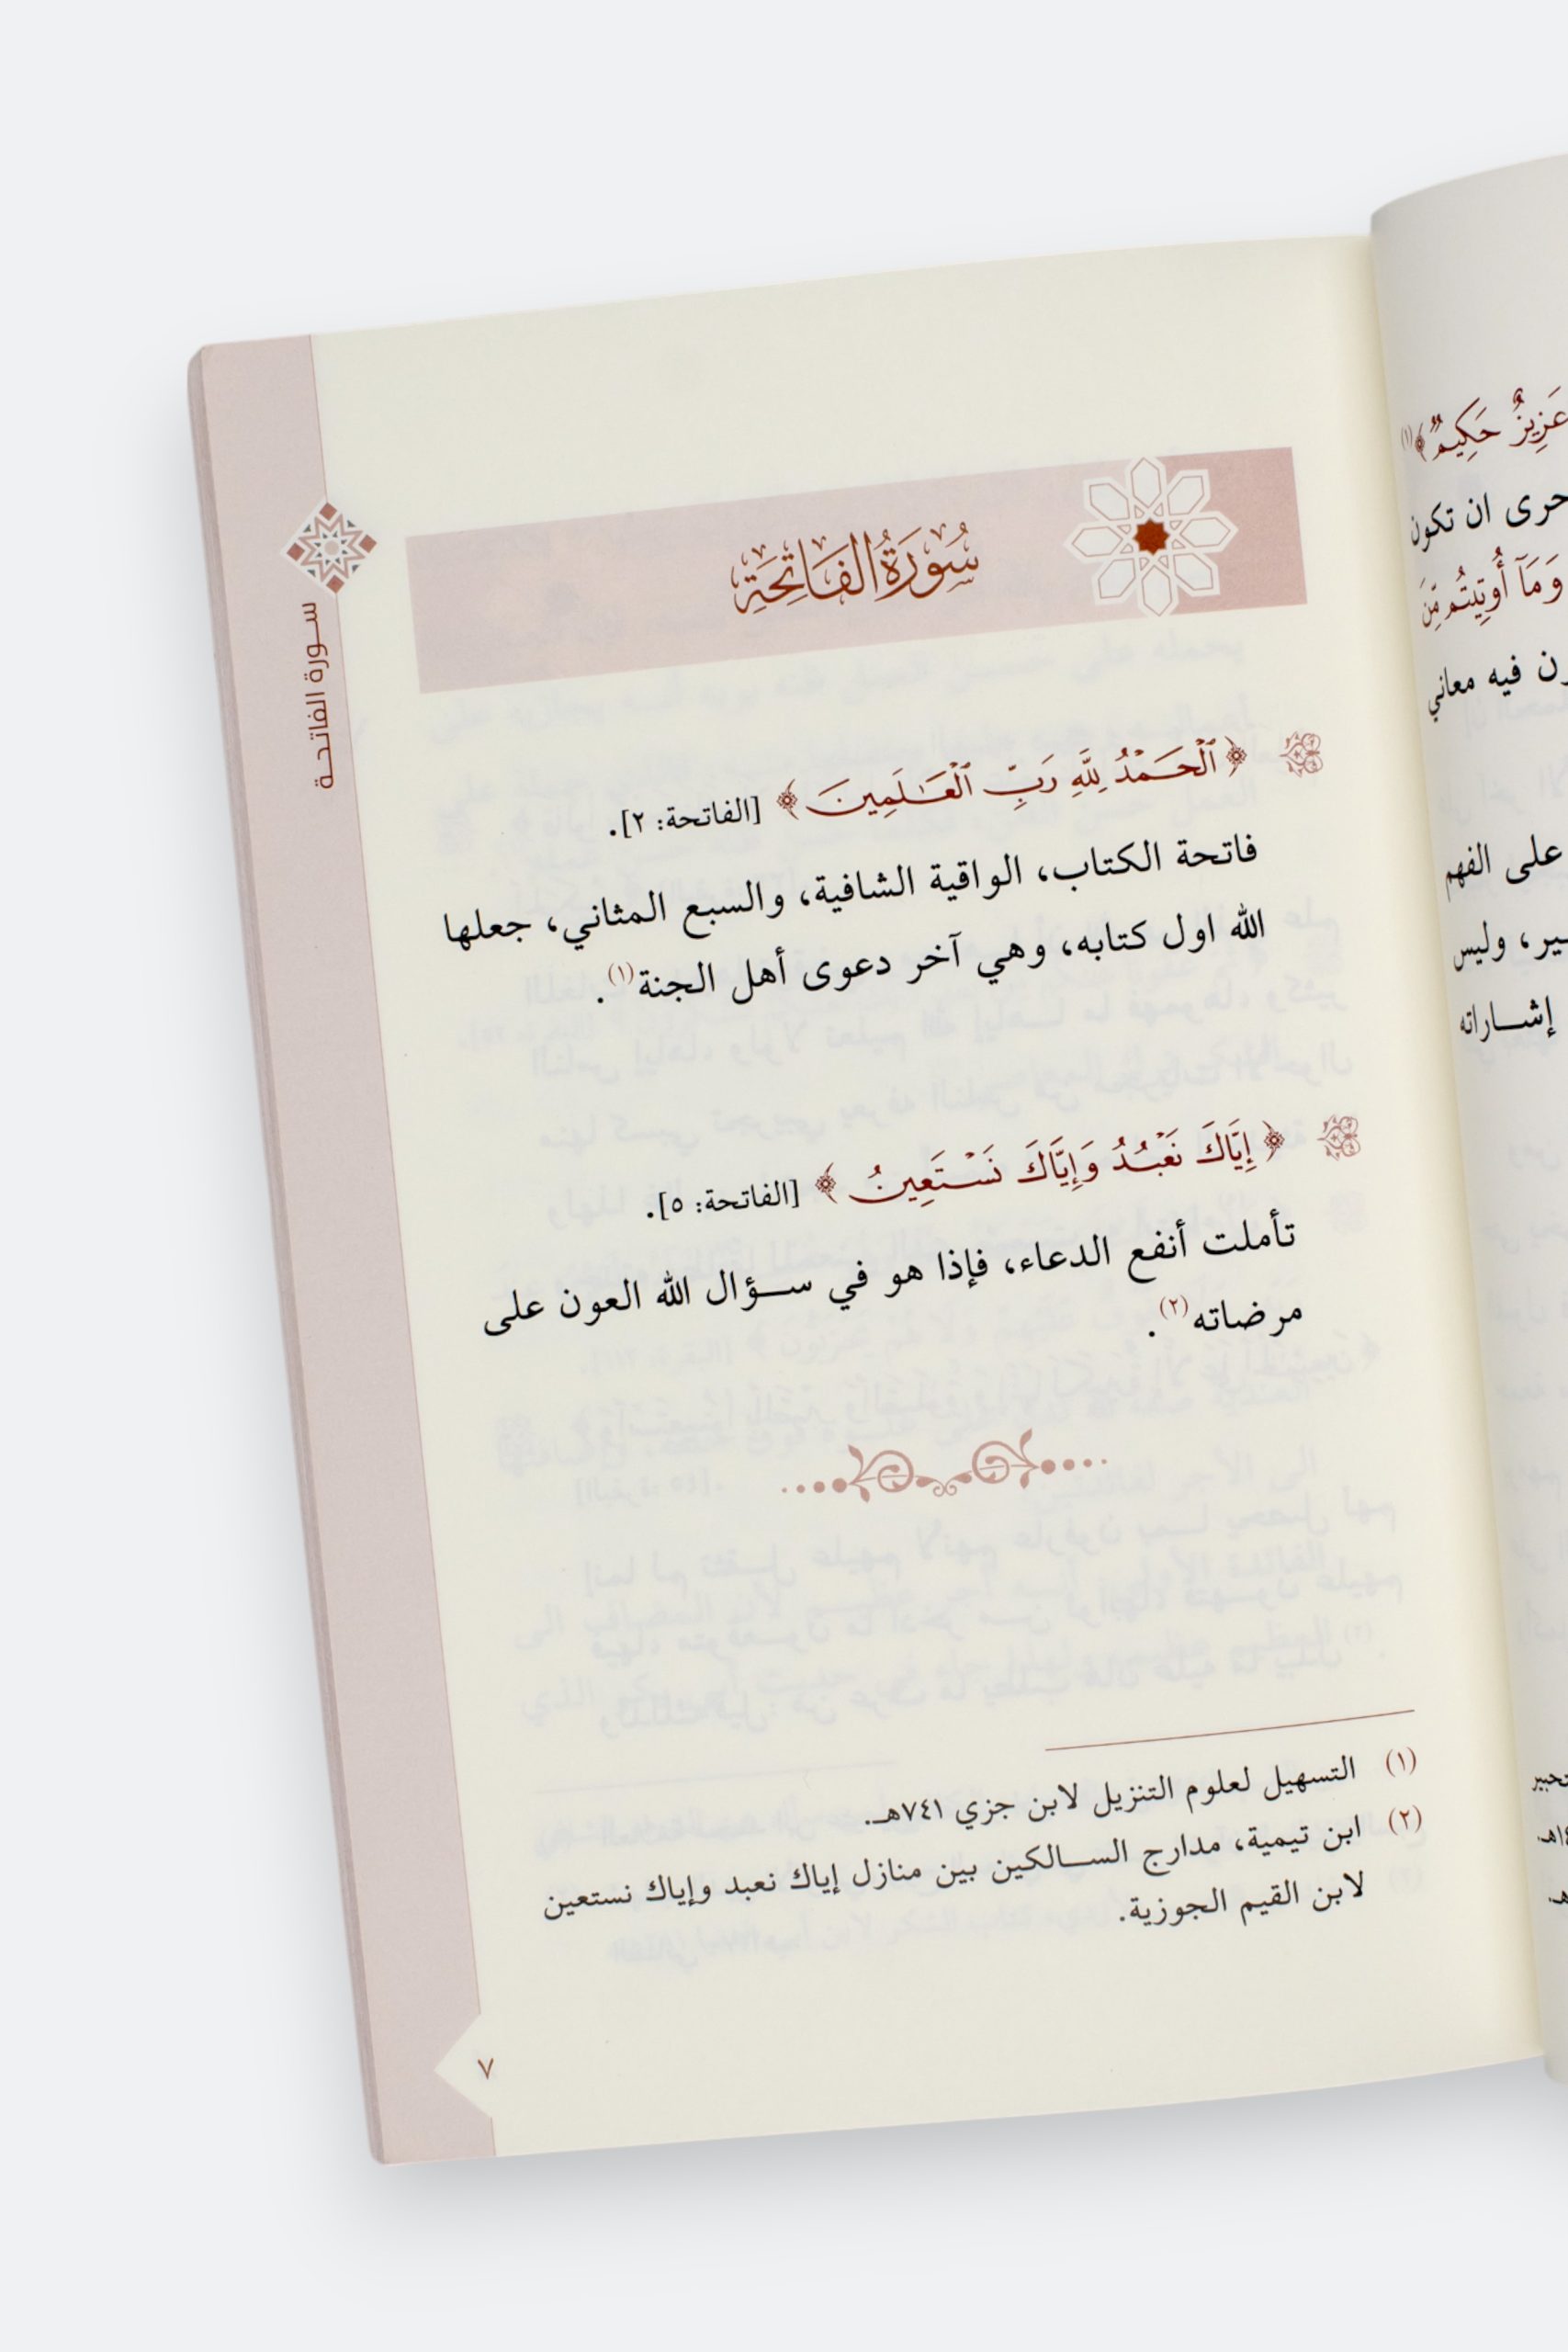 سُورَةُ الفَاتِحَةِ
سـورة الفاتحـة
﴿ ٱلْحَمْدُ لِلَّهِ رَبِّ ٱلْعَـٰلَمِينَ ﴾ [الفاتحة: ٢].
فاتحة الكتاب، الواقية الشافية، والسبع المثاني، جعلها
الله اول كتابه، وهي آخر دعوى أهل الجنة(١).
﴿ إِيَّاكَ نَعْبُدُ وَإِيَّاكَ نَسْتَعِينُ ﴾ [الفاتحة: ٥].
تأملت أنفع الدعاء، فإذا هو في سـؤال الله العون على
مرضاته(٢).
(١) التسهيل لعلوم التنزيل لابن جزي ٧٤١هـ.
(٢) ابن تيمية، مدارج السـالكين بين منازل إياك نعبد وإياك نستعين
لابن القيم الجوزية.
٧
عَزِيزٌ حَكِيمٌ﴾(١)
حرى ان تكون
وَمَآ أُوتِيتُم مِّنَ
فيه معاني
على الفهم
وليس
إشـاراته